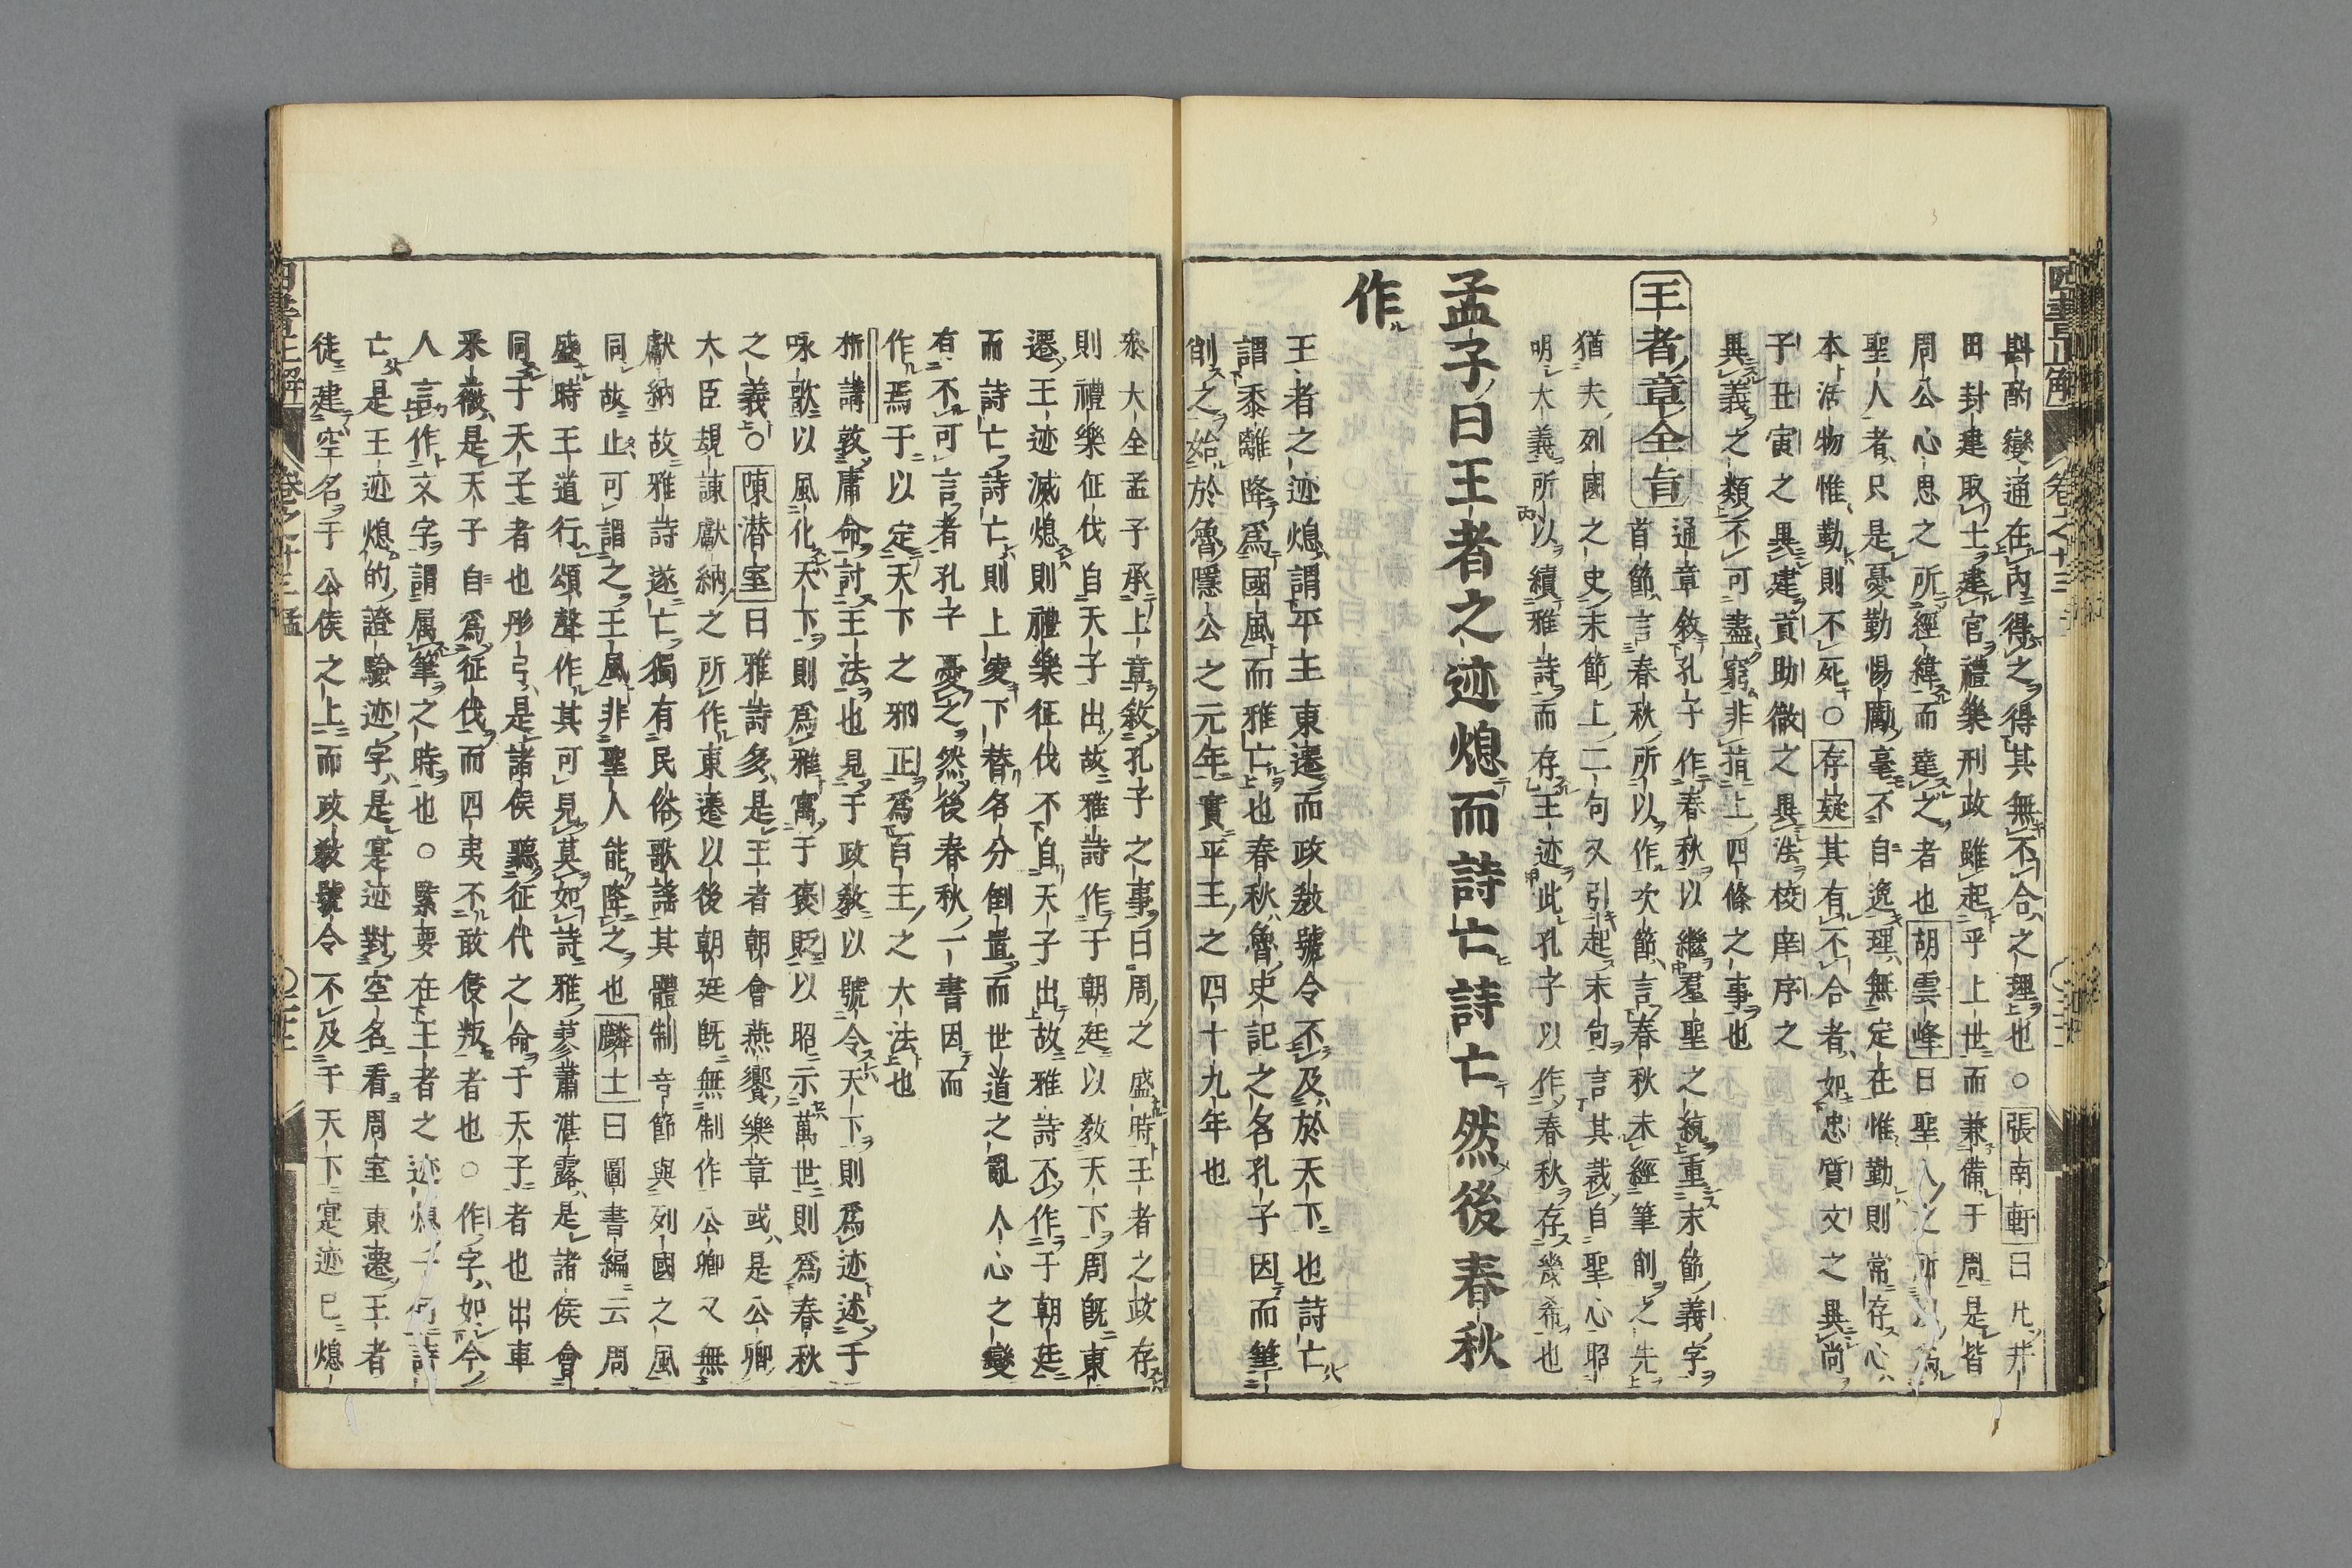 斟酌變通在內得之得其無不合之理也○張南軒曰凡井
田封建取士建官禮樂刑政雖起乎上世而兼備于周是皆
周公心思之所經緯而達之者也胡雲峰曰聖人之所
聖人者只是憂勤惕勵毫不自逸理無定在惟勤則常存心
本活物惟勤則不死○存疑其有不合者如忠質文之異尚
子丑寅之異建貢助徹之異法校庠序之
異義之類不可盡窮非指上四條之事也
王者章全旨
通章敘孔子作春秋以繼羣聖之統重末節義字
首節言春秋所以作次節言春秋未經筆削之先
猶夫列國之史末節上二句又引起末句言其裁自聖心昭
明大義所以續雅詩而存王迹此孔子以作春秋存幾希也
孟子曰王者之迹熄而詩亡詩亡然後春秋
作
王者之迹熄謂平王東遷而政敎號令不及於天下也詩亡
謂黍離降爲國風而雅亡也春秋魯史記之名孔子因而筆
削之始於魯隱公之元年實平王之四十九年也
叅大全孟子承上章敘孔子之事曰周之盛時王者之政存
則禮樂征伐自天子出故雅詩作于朝廷以敎天下周旣東
遷王迹滅熄則禮樂征伐不自天子出故雅詩不作于朝廷
而詩亡詩亡則上凌下替名分倒置而世道之亂人心之變
有不可言者孔子憂之然後春秋一書因而
作焉于以定天下之邪正爲百王之大法也
析講敦庸命討王法也見于政敎以號令天下則爲迹述于
咏歌以風化天下則爲雅寓于褒貶以昭示萬世則爲春秋
之義○陳潜室曰雅詩多是王者朝會燕饗樂章或是公卿
大臣規諫獻納之所作東遷以後朝廷旣無制作公卿又無
獻納故雅詩遂亡獨有民俗歌謠其體制音節與列國之風
同故止可謂之王風非聖人能降之也麟士曰圖書編云周
盛時王道行頌聲作其可見莫如詩雅蓼蕭湛露是諸侯會
同于天子者也彤弓是諸侯聽征代之命于天子者也出車
釆薇是天子自爲征伐而四夷不敢侵叛者也○作字如今
人言作文字謂属筆之時也○緊要在王者之迹熄
亡是王迹熄的證驗迹字是寔迹對空名看周室東遷王者
徒建空名于公侯之上而政敎號令不及于天下寔迹已熄